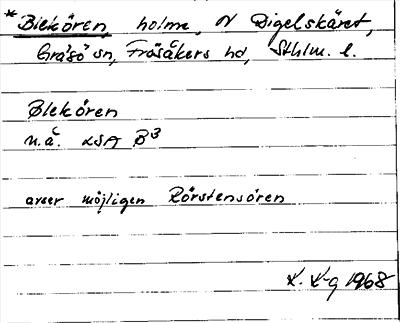 *Blekören, holme, N Digelskäret,
Gräsö sn, Frösåkers hd, Sthlm. l.
Blekören
n.ä. LSA B³
avser möjligen Rörstensören
K. K-g 1968